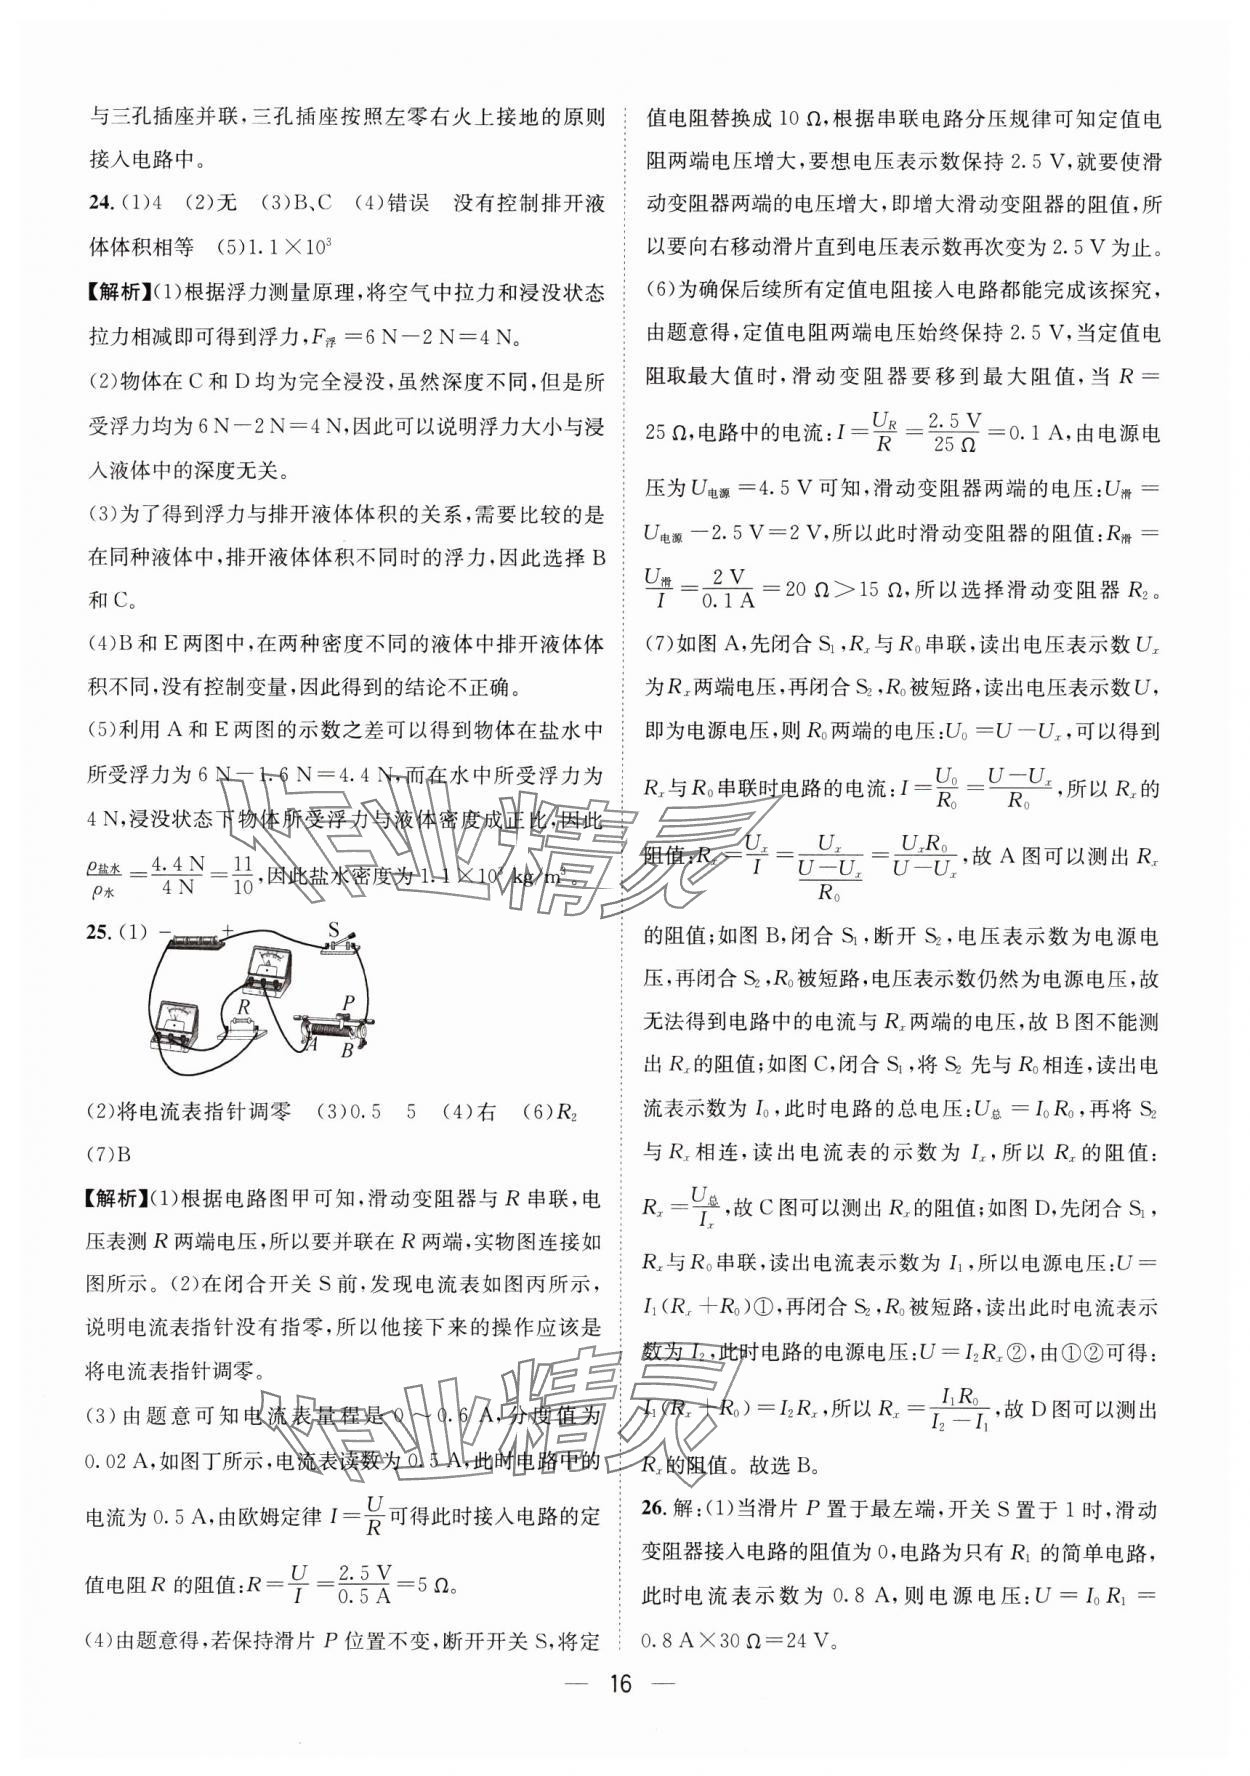 与三孔插座并联,三孔插座按照左零右火上接地的原则
接入电路中。
24.(1)4 (2)无 (3)B、C (4)错误 没有控制排开液
体体积相等 (5)1.1×10³
【解析】(1)根据浮力测量原理,将空气中拉力和浸没状态
拉力相减即可得到浮力,F浮=6 N-2 N=4 N。
(2)物体在 C 和 D 均为完全浸没,虽然深度不同,但是所
受浮力均为 6 N-2 N=4 N,因此可以说明浮力大小与浸
入液体中的深度无关。
(3)为了得到浮力与排开液体体积的关系,需要比较的是
在同种液体中,排开液体体积不同时的浮力,因此选择 B
和 C。
(4)B 和 E 两图中,在两种密度不同的液体中排开液体体
积不同,没有控制变量,因此得到的结论不正确。
(5)利用 A 和 E 两图的示数之差可以得到物体在盐水中
所受浮力为 6 N-1.6 N=4.4 N,而在水中所受浮力为
4 N,浸没状态下物体所受浮力与液体密度成正比,因此
ρ盐水/ρ水=4.4 N/4 N=11/10,因此盐水密度为 1.1×10³ kg/m³。
25.(1) - + S
R P
A B
(2)将电流表指针调零 (3)0.5 5 (4)右 (6)R₂
(7)B
【解析】(1)根据电路图甲可知,滑动变阻器与 R 串联,电
压表测 R 两端电压,所以要并联在 R 两端,实物图连接如
图所示。(2)在闭合开关 S 前,发现电流表如图丙所示,
说明电流表指针没有指零,所以他接下来的操作应该是
将电流表指针调零。
(3)由题意可知电流表量程是 0~0.6 A,分度值为
0.02 A,如图丁所示,电流表读数为 0.5 A,此时电路中的
电流为 0.5 A,由欧姆定律 I=U/R可得此时接入电路的定
值电阻 R 的阻值:R=U/I=2.5 V/0.5 A=5 Ω。
(4)由题意得,若保持滑片 P 位置不变,断开开关 S,将定
值电阻替换成 10 Ω,根据串联电路分压规律可知定值电
阻两端电压增大,要想电压表示数保持 2.5 V,就要使滑
动变阻器两端的电压增大,即增大滑动变阻器的阻值,所
以要向右移动滑片直到电压表示数再次变为 2.5 V 为止。
(6)为确保后续所有定值电阻接入电路都能完成该探究,
由题意得,定值电阻两端电压始终保持 2.5 V,当定值电
阻取最大值时,滑动变阻器要移到最大阻值,当 R=
25 Ω,电路中的电流:I=U_R/R=2.5 V/25 Ω=0.1 A,由电源电
压为 U电源=4.5 V 可知,滑动变阻器两端的电压:U滑=
U电源-2.5 V=2 V,所以此时滑动变阻器的阻值:R滑=
U滑/I=2 V/0.1 A=20 Ω>15 Ω,所以选择滑动变阻器 R₂。
(7)如图 A,先闭合 S₁,Rₓ与 R₀串联,读出电压表示数 Uₓ
为 Rₓ两端电压,再闭合 S₂,R₀被短路,读出电压表示数 U,
即为电源电压,则 R₀两端的电压:U₀=U-Uₓ,可以得到
Rₓ与 R₀串联时电路的电流:I=U₀/R₀=(U-Uₓ)/R₀,所以 Rₓ的
阻值:Rₓ=Uₓ/I=Uₓ/((U-Uₓ)/R₀)=UₓR₀/(U-Uₓ),故 A 图可以测出 Rₓ
的阻值;如图 B,闭合 S₁,断开 S₂,电压表示数为电源电
压,再闭合 S₂,R₀被短路,电压表示数仍然为电源电压,故
无法得到电路中的电流与 Rₓ两端的电压,故 B 图不能测
出 Rₓ的阻值;如图 C,闭合 S₁,将 S₂ 先与 R₀相连,读出电
流表示数为 I₀,此时电路的总电压:U总=I₀R₀,再将 S₂
与 Rₓ相连,读出电流表的示数为 Iₓ,所以 Rₓ的阻值:
Rₓ=U总/Iₓ,故 C 图可以测出 Rₓ的阻值;如图 D,先闭合 S₁,
Rₓ与 R₀串联,读出电流表示数为 I₁,所以电源电压:U=
I₁(Rₓ+R₀)①,再闭合 S₂,R₀被短路,读出此时电流表示
数为 I₂,此时电路的电源电压:U=I₂Rₓ②,由①②可得:
I₁(Rₓ+R₀)=I₂Rₓ,所以 Rₓ=I₁R₀/(I₂-I₁),故 D 图可以测出
Rₓ的阻值。故选 B。
26.解:(1)当滑片 P 置于最左端,开关 S 置于 1 时,滑动
变阻器接入电路的阻值为 0,电路为只有 R₁ 的简单电路,
此时电流表示数为 0.8 A,则电源电压:U=I₀R₁=
0.8 A×30 Ω=24 V。
— 16 —
作业精灵
作业精灵